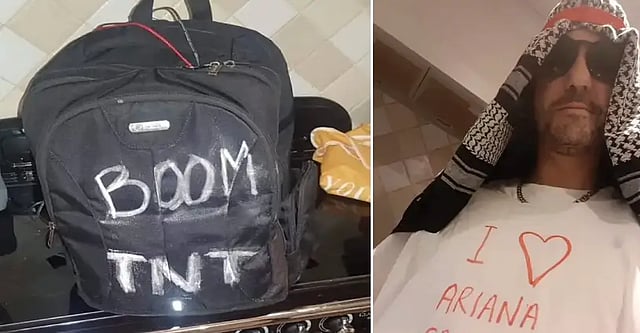 BOOM
TNT
YOU
I ♡
ARIANA